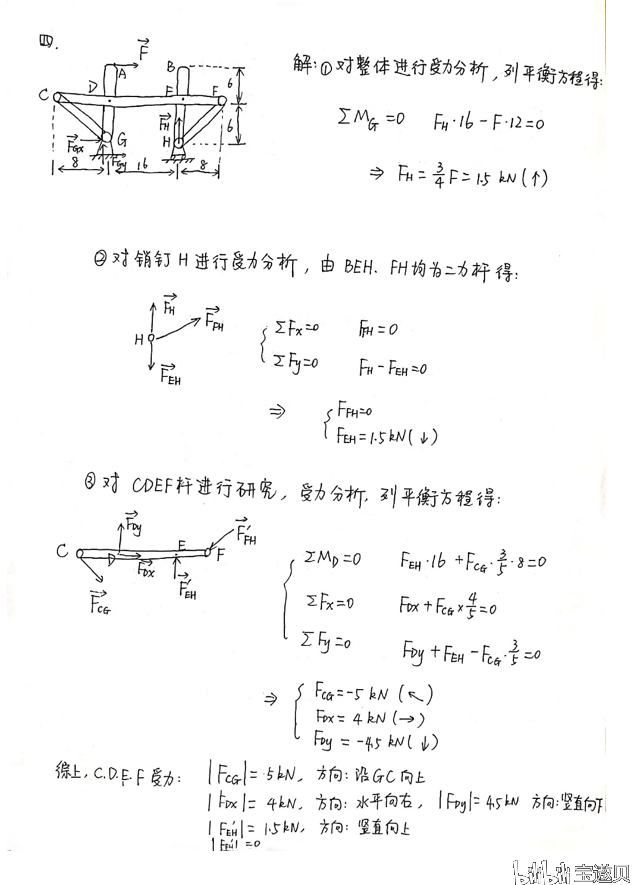 四.
F
A
B
C
D
E
F
6
6
F_Gx
G
F_Gy
F_H
H
8
16
8
解:①对整体进行受力分析,列平衡方程得:
ΣM_G=0 F_H·16-F·12=0
⇒ F_H=3/4F=1.5 kN(↑)
②对销钉H进行受力分析,由BEH、FH均为二力杆得:
F_H
H
F_FH
F_EH
ΣFx=0 F_FH=0
ΣFy=0 F_H-F_EH=0
⇒ F_FH=0
F_EH=1.5kN(↓)
③对CDEF杆进行研究,受力分析,列平衡方程得:
F_Dy
C
D
E
F
F'_FH
F_Dx
F'_EH
F_CG
ΣM_D=0 F_EH·16+F_CG·3/5·8=0
ΣFx=0 F_Dx+F_CG×4/5=0
ΣFy=0 F_Dy+F_EH-F_CG·3/5=0
⇒ F_CG=-5 kN(↖)
F_Dx=4 kN(→)
F_Dy=-4.5 kN(↓)
综上,C.D.E.F受力: |F_CG|=5kN,方向:沿GC向上
|F_Dx|=4kN,方向:水平向右,|F_Dy|=4.5kN 方向:竖直向下
|F'_EH|=1.5kN,方向:竖直向上
bilibili 宝遂贝